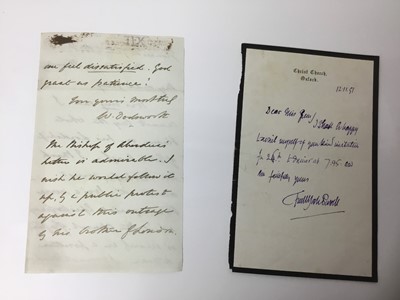 one feel dissatisfied. God
grant us patience!
Ever yours most truly
W. Dodsworth
The Bishop of Aberdeen's
letter is admirable. I
wish he would follow it
up, by a public protest
against this outrage
by his brother of London.
Christ Church,
Oxford.
Dear Miss
I shall be happy
to avail myself of your kind invitation
for 24th & Dinner at 7.45.
yours